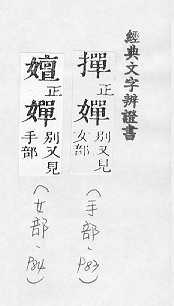 經典文字辨證書
撣正
嬋別又見女部
(手部、P83)
嬗正
嬋別又見手部
(女部、P84)